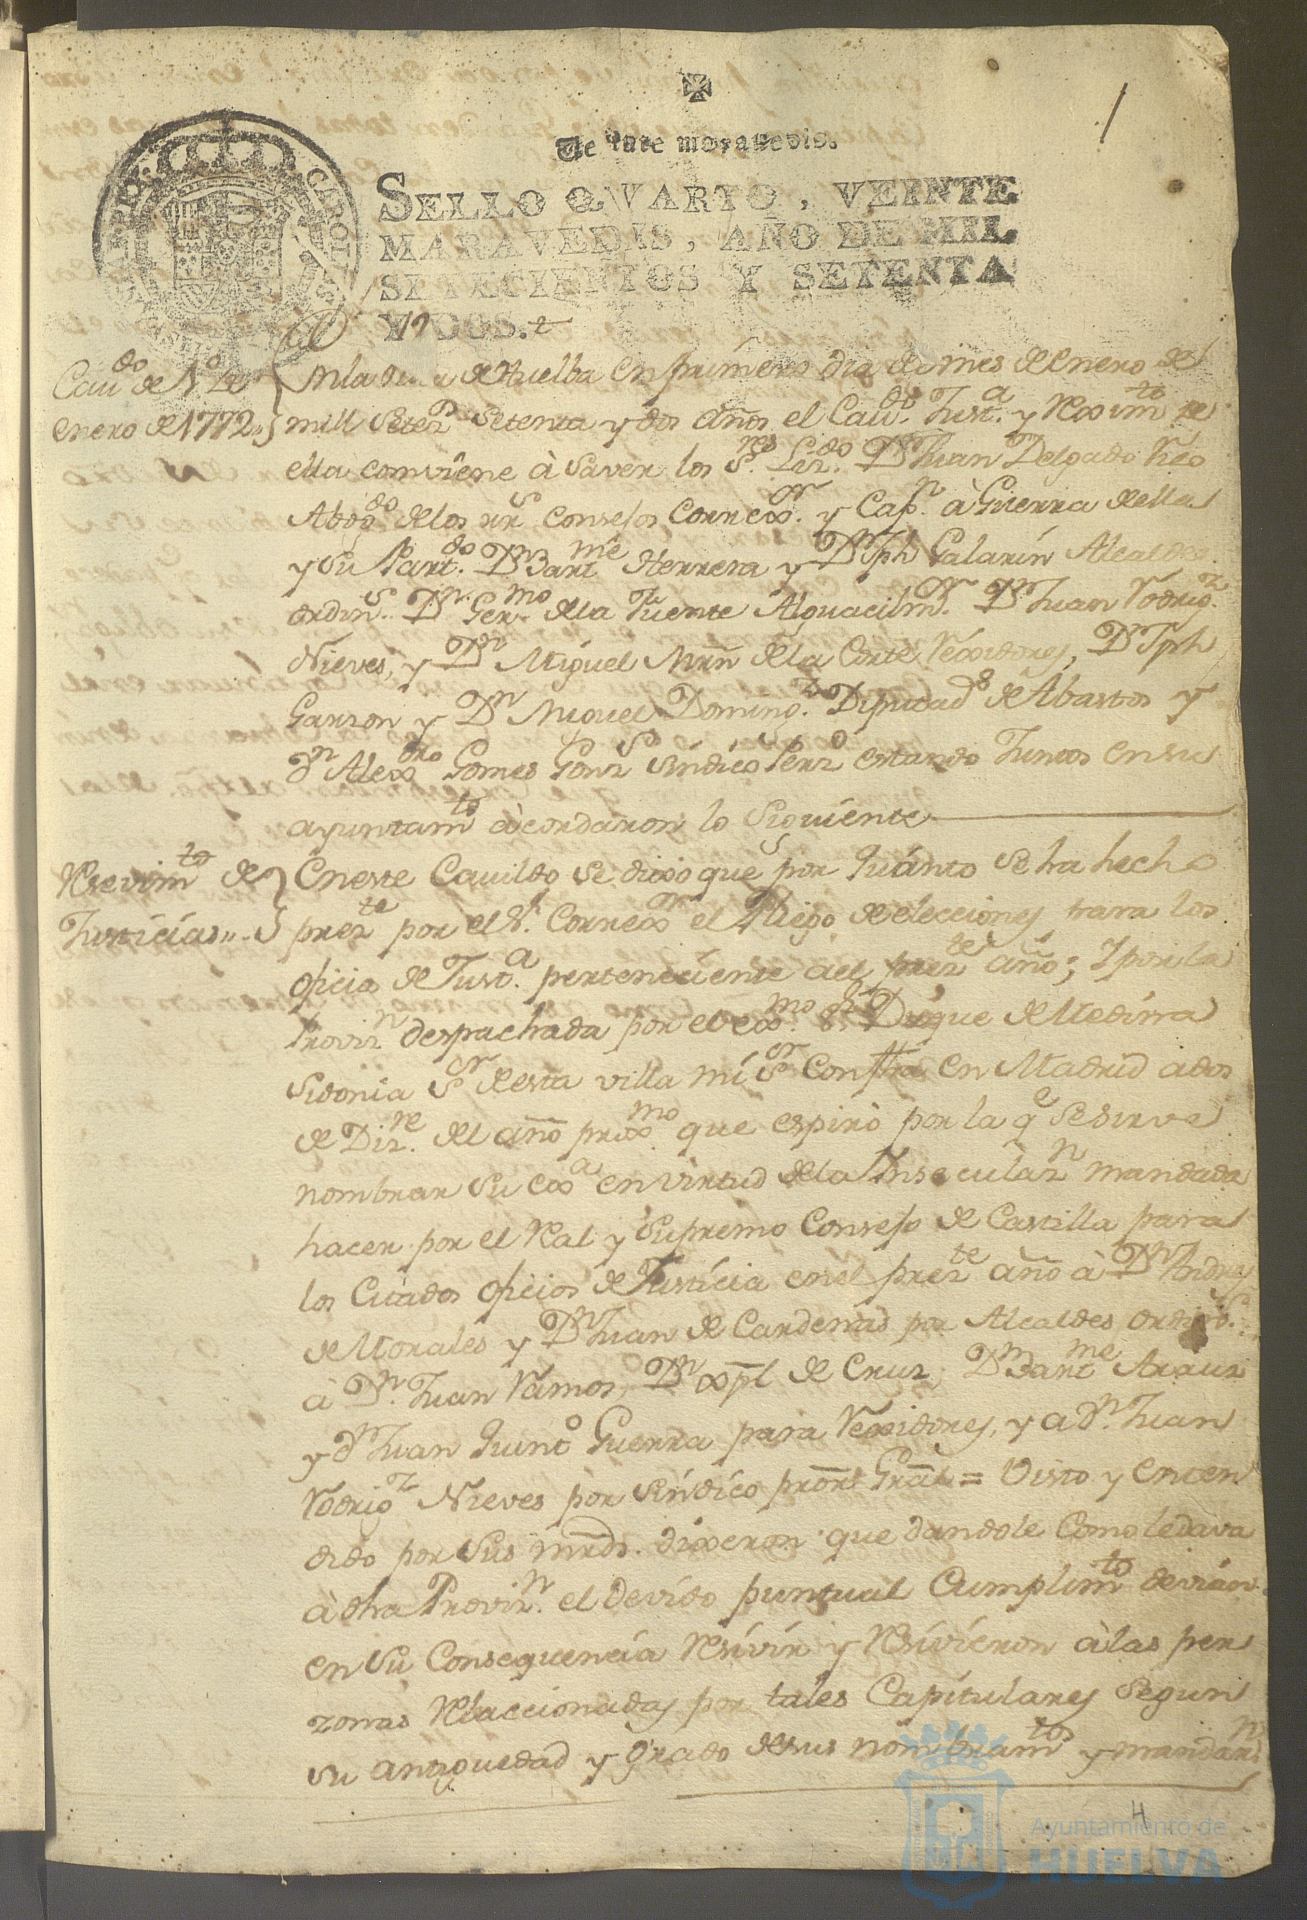 1
Veinte maravedis.
SELLO QVARTO, VEINTE
MARAVEDIS, AÑO DE MIL
SETECIENTOS Y SETENTA
Y DOS.
Cavdo de 1o de
enero de 1772
En la Villa de Huelba en primero dia del mes de enero de
mill Setezs Setenta y dos años el Cavdo Justa y Reximto de
ella comviene à Saver los Sres Lizdo Dn Juan Delgado Rico
Abogdo delos rrs Consejos Correxor y Capn à Guerra de ella
y su Partdo Dn Bartme Herrera y Dn Jph Galarin Alcaldes
ordins Dn Germo dela Fuente Alguacil mor Dn Juan Rodrigz
Nieves, y Dn Miguel Mrñ dela Corte Rexidores, Dn Jph
Garzon y Dn Miguel Domingz Diputads de Abastos y
Dn Alexdro Gomes Gonz Sindico Perzo estando Juntos en su
ayuntamto acordaron lo Siguiente
Resevimto de
Justicias
En este Cavildo se dixo que por quanto se ha hecho
prezte por el Sr Correxor el Pliego de elecciones para los
oficios de Justa perteneciente a el prezte año; I por la
Provizn despachada por el exmo Sr Duque de Medina
Sidonia Sr de esta villa mi Sr Con fha en Madrid a dos
de Dizre del año proxmo que espirò por la qe Se sirve
nombrar Su exa en virtud dela Insecularn mandada
hacer por el Real y Supremo Consejo de Castilla para
los Citados oficios de Justicia en el prezte año à Dn Andres
de Morales y Dn Juan de Cardenas por Alcaldes ordins
à Dn Juan Ramos, Dn xpl de Cruz, Dn Bartme Arauz
y Dn Juan Quinto Guerra para Rexidores, y a Dn Juan
Rodrigz Nieves por Sindico pror Gral = Visto y enten
dido por Sus mrds. dixeron que dandole Como le dava
à dha Provizn el devido puntual Cumplimto devian
en su Consequencia Resivir y Resivieron à las per
zonas Relaccionadas por tales Capitulares Segun
su antiguedad y grado de sus nombramtos y mandan
4
Ayuntamiento de
HUELVA